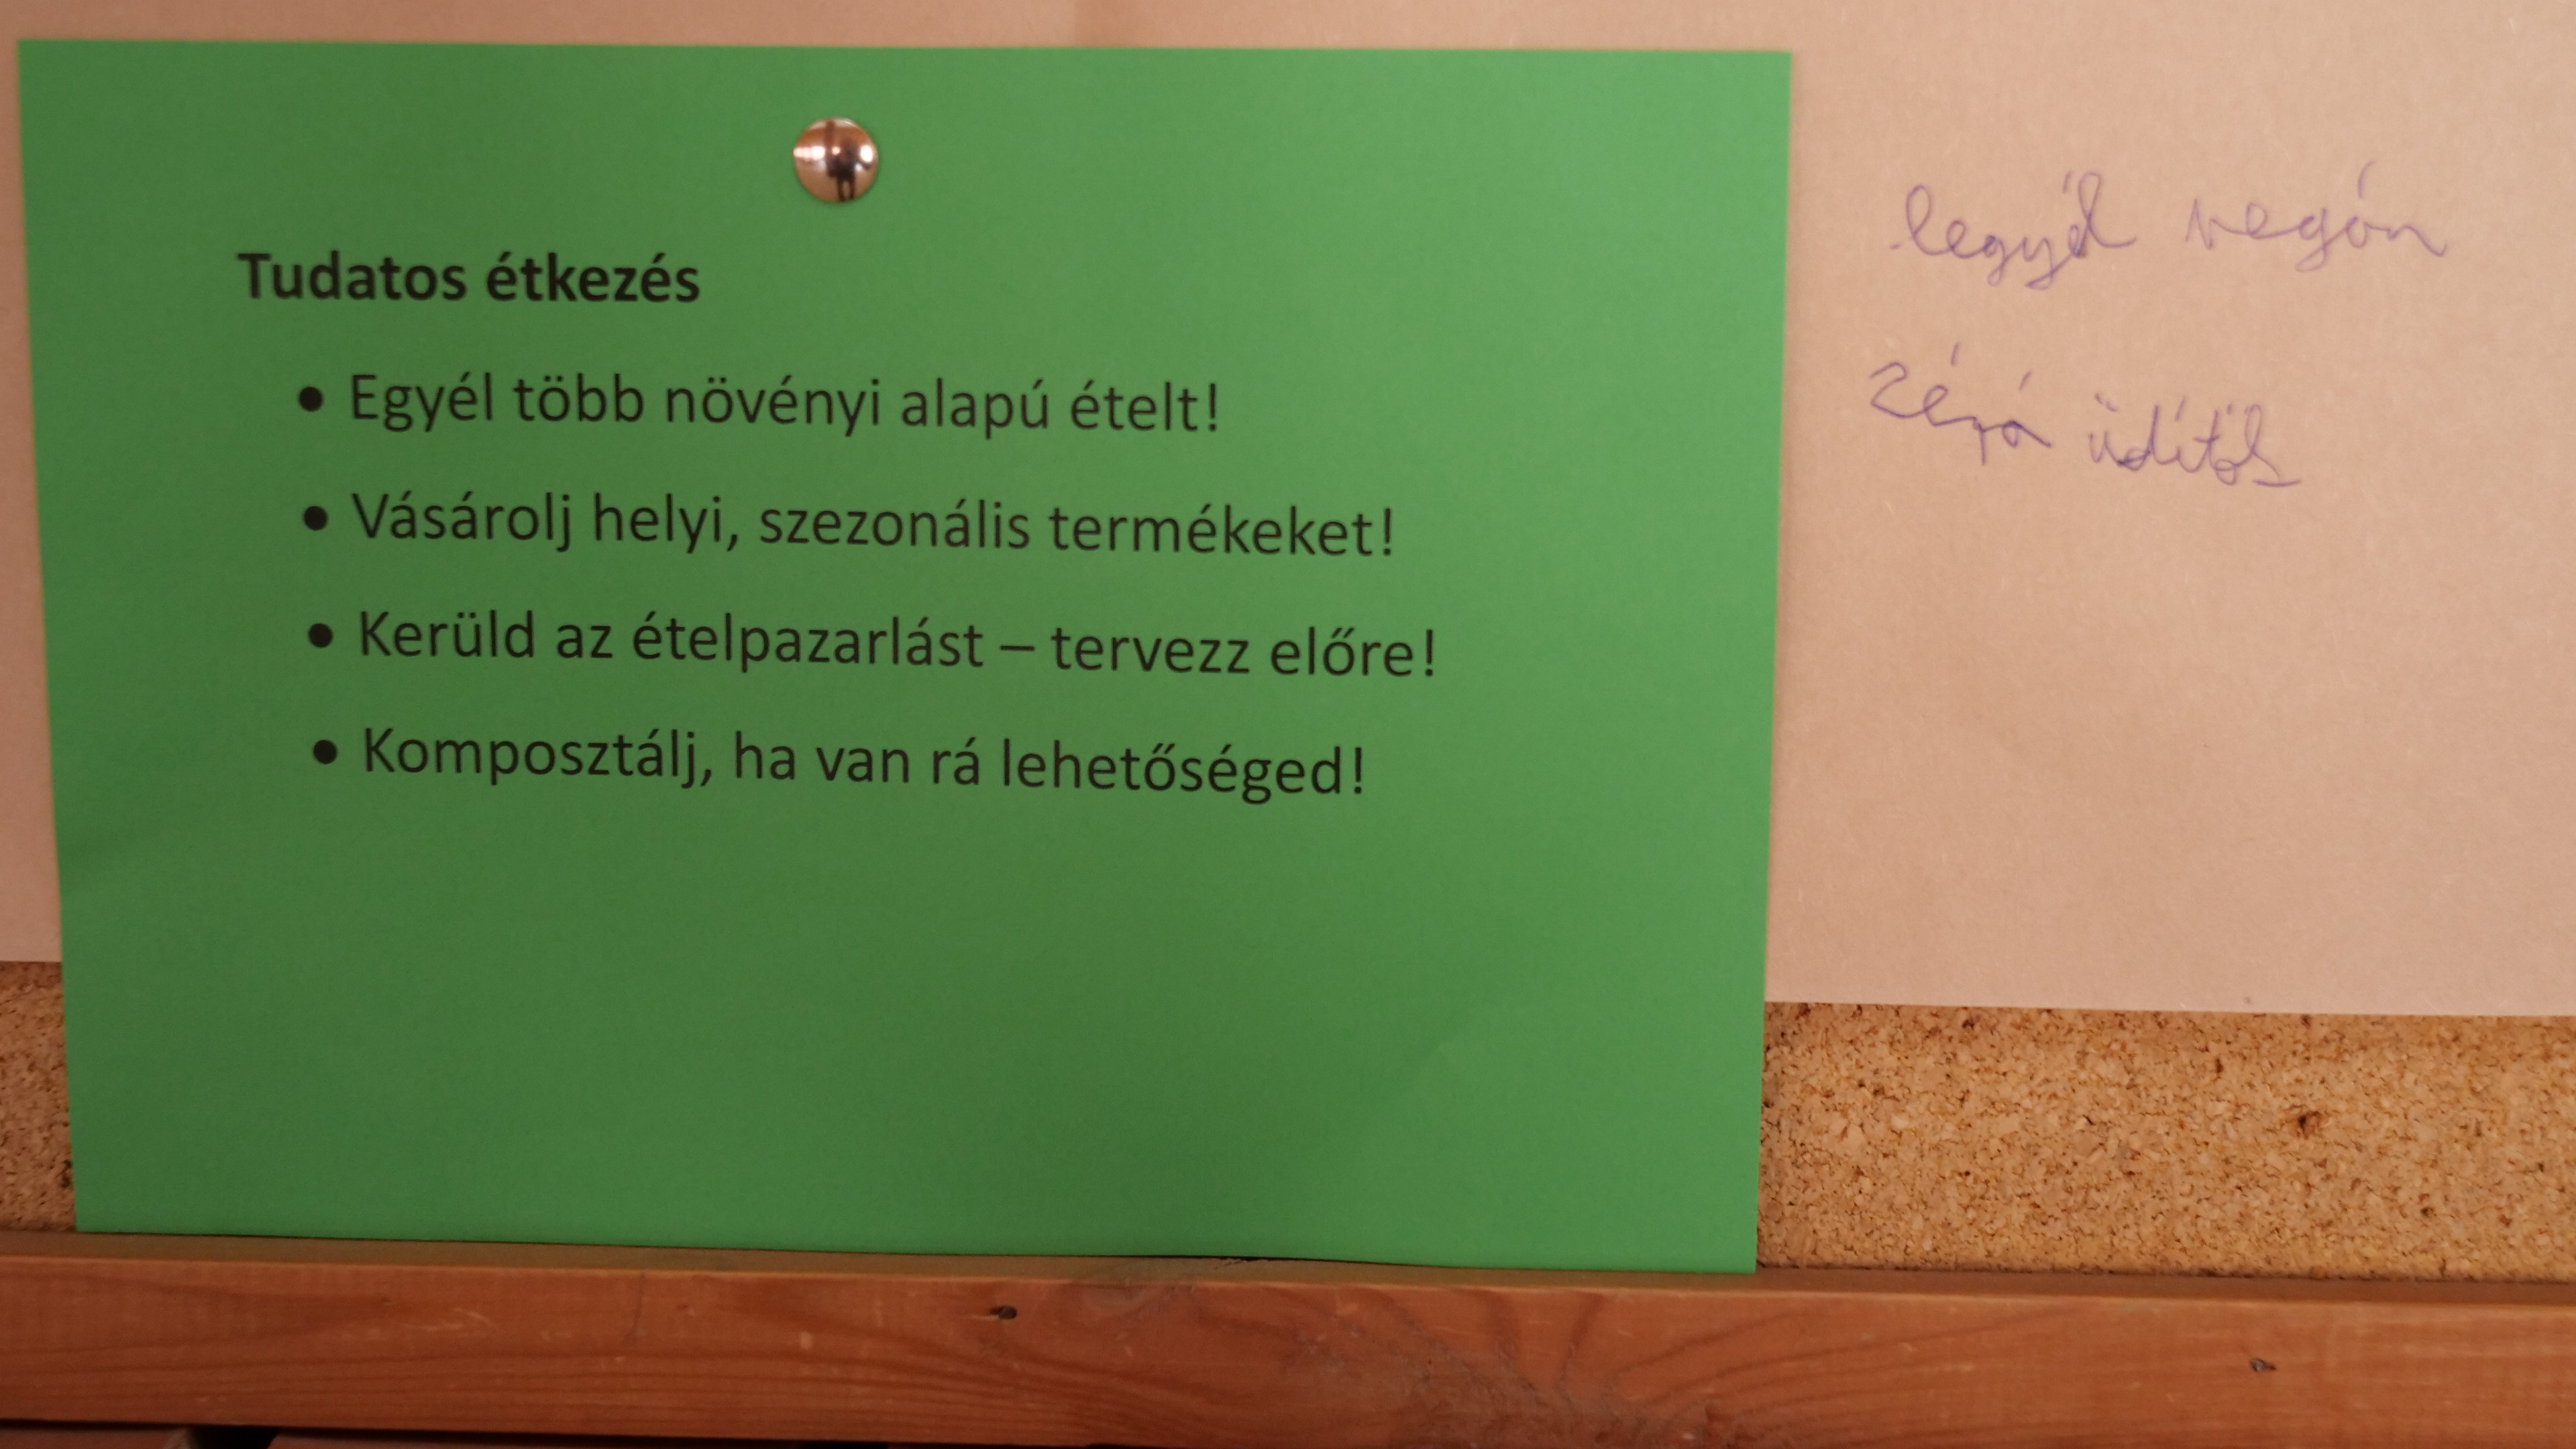 Tudatos étkezés
• Egyél több növényi alapú ételt!
• Vásárolj helyi, szezonális termékeket!
• Kerüld az ételpazarlást – tervezz előre!
• Komposztálj, ha van rá lehetőséged!
legyél vegán
zéró üdítős